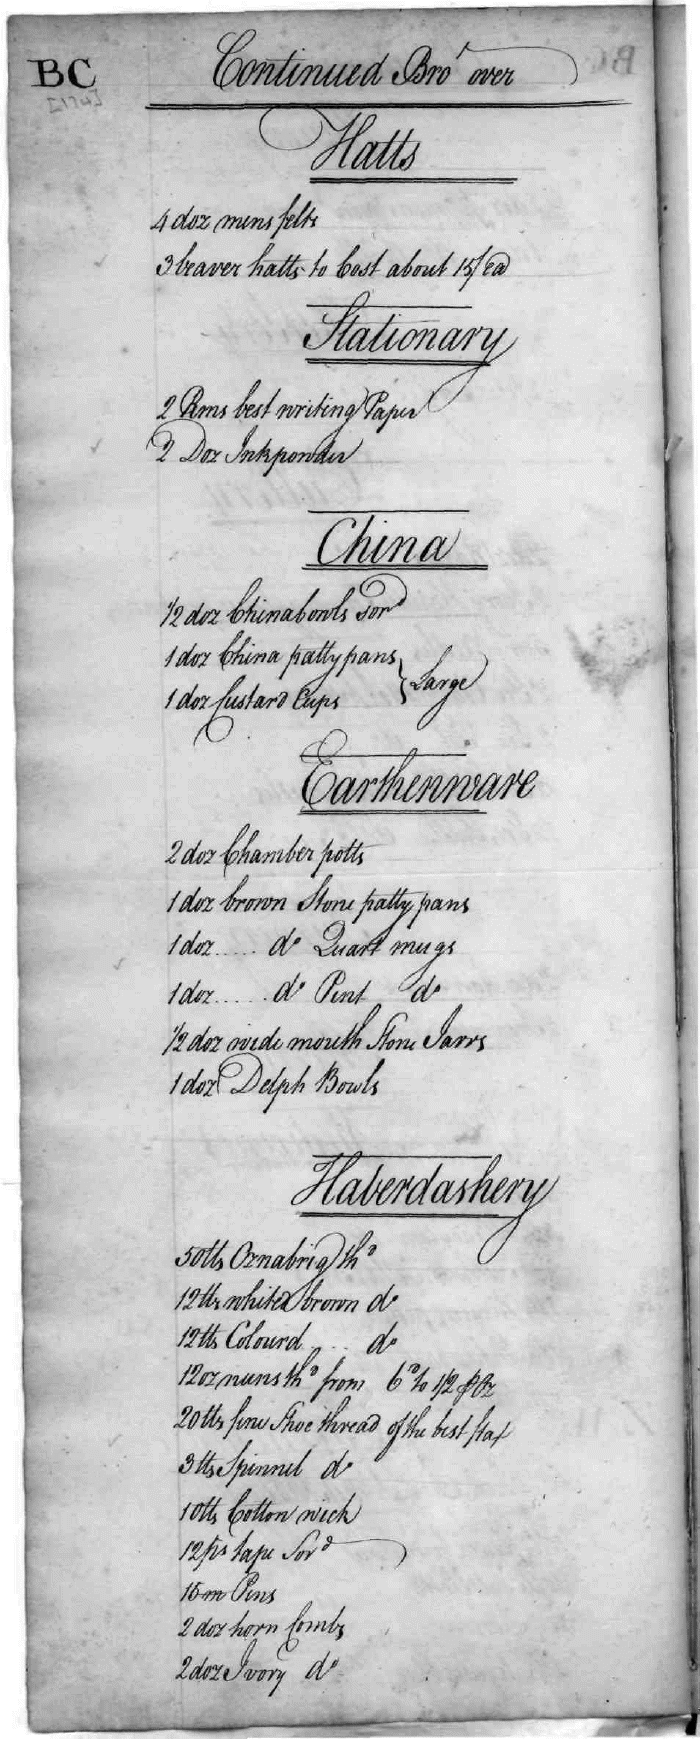 BC
Continued Bro.t over
Hatts
4 doz mens felts
3 beaver hatts to Cost about 15/ea
Stationary
2 Rms best writing Paper
2 Doz Inkpowder
China
1/2 doz Chinabowls Sor.d
1 doz China pattypans
1 doz Custard Cups } Large
Earthenware
2 doz Chamber potts
1 doz brown Stone patty pans
1 doz ..... d.o Quart mugs
1 doz ...... d.o Pint d.o
1/2 doz wide mouth Stone Jarrs
1 doz Delph Bowls
Haberdashery
50 tts Oznabrig th.d
12 tts whited brown d.o
12 tts Colourd ... d.o
12 oz nuns th.d from 6.d to 1/2 ⅌ Oz
20 tts fine Shoe thread of the best flax
3 tts Spinnel d.o
10 tts Cotton wick
12 ps tape Sor.d
15 m Pins
2 doz horn Combs
2 doz Ivory d.o